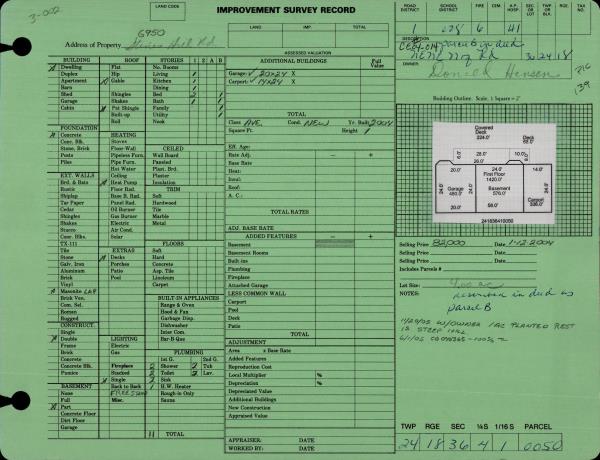 3-002
LAND CODE
IMPROVEMENT SURVEY RECORD
6950
Address of Property
ASSESSED VALUATION
LAND IMP. TOTAL
ROAD DISTRICT SCHOOL DISTRICT FIRE A.P. HOSP. SEC. OR LOT TWP. OR BLK. RGE. TAX NO.
1 6 41
DESCRIPTION
parcel B in deed
36 24 18
OWNER
Donald Hensen
BUILDING
Dwelling
Duplex
Apartment
Barn
Shed
Garage
Cabin
FOUNDATION
Concrete
Conc. Blk.
Stone, Brick
Posts
Piles
EXT. WALLS
Brd. & Bats
Rustic
Shiplap
Tar Paper
Cedar
Shingles
Shakes
Stucco
Conc. Blks.
TX-111
Tile
Stone
Galv. Iron
Aluminum
Brick
Vinyl
Masonite LAP
Brick Ven.
Com. Sel.
Roman
Rugged
CONSTRUCT.
Single
Double
Frame
Brick
Concrete
Concrete Blk.
Pumice
BASEMENT
None
Full
Part
Concrete Floor
Dirt Floor
Garage
ROOF
Flat
Hip
Gable
Shingles
Shakes
Pat Shingle
Built-up
Roll
HEATING
Stoves
Floor-Wall
Pipeless Furn.
Pipe Furn.
Hot Water
Ceiling
Heat Pump
Floor Rad.
Base B. Rad.
Panel Rad.
Oil Burner
Gas Burner
Electric
Air Cond.
Solar
EXTRAS
Decks
Porches
Patio
Pool
LIGHTING
Electric
Gas
Fireplace
Stacked
Single
Back to Back
FREE STAND
Misc.
STORIES 1 2 A B
No. Rooms
Living
Kitchen
Dining
Bed
Bath
Family
Utility
Nook
CEILED
Wall Board
Paneled
Plast. Brd.
Plaster
Insulation
TRIM
Soft
Hardwood
Tile
Marble
Metal
FLOORS
Soft
Hard
Concrete
Asp. Tile
Linoleum
Carpet
BUILT-IN APPLIANCES
Range & Oven
Hood & Fan
Garbage Disp.
Dishwasher
Inter Com.
Bar-B-Que
PLUMBING
1st G. 2nd G.
2 Shower 2 Tub
2 Toilet 2 Lav.
2 Sink
1 H.W. Heater
Rough-in Only
Sauna
11 TOTAL
ADDITIONAL BUILDINGS Full Value
Garage: ✓ 20x24 X
Carport: ✓ 14x24 X
TOTAL
Class AVE. Cond. NEW Yr. Built 2004
Square Ft. Height 1
Eff. Age:
Rate Adj. - +
Base Rate:
Heat:
Insul:
Roof:
A. C.:
TOTAL RATES
ADJ. BASE RATE
ADDED FEATURES - +
Basement
Basement Rooms
Built-ins
Plumbing
Fireplace
Attached Garage
LESS COMMON WALL
Carport
Pool
Deck
Patio
TOTAL
ADJUSTMENT
Area x Base Rate
Added Features
Reproduction Cost
Local Multiplier %
Depreciation %
Depreciated Value
Additional Buildings
New Construction
Appraised Value
APPRAISER: DATE
WORKED BY: DATE
Building Outline: Scale, 1 Square = 2'
Covered
Deck
224.0'
Deck
65.0'
28.0'
10.0'
26.0'
20.0'
24.0'
14.0'
First Floor
1420.0'
Garage
480.0'
Basement
576.0'
Carport
336.0'
20.0'
58.0'
241836410050
Selling Price 82,000 Date 1-12-2004
Selling Price Date
Includes Parcels #
Lot Size:
NOTES:
described in deed as
parcel B
W/OWNER 1 AC PLANTED REST
IS STEEP HILL
TWP RGE SEC ¼S 1/16 S PARCEL
24 18 36 4 1 0050